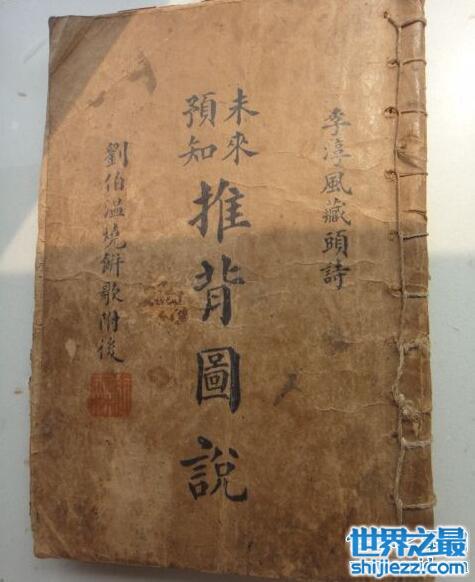 李淳風藏頭詩
未來
預知
推背圖說
劉伯溫燒餅歌附後
世界之最
shijiezz.com